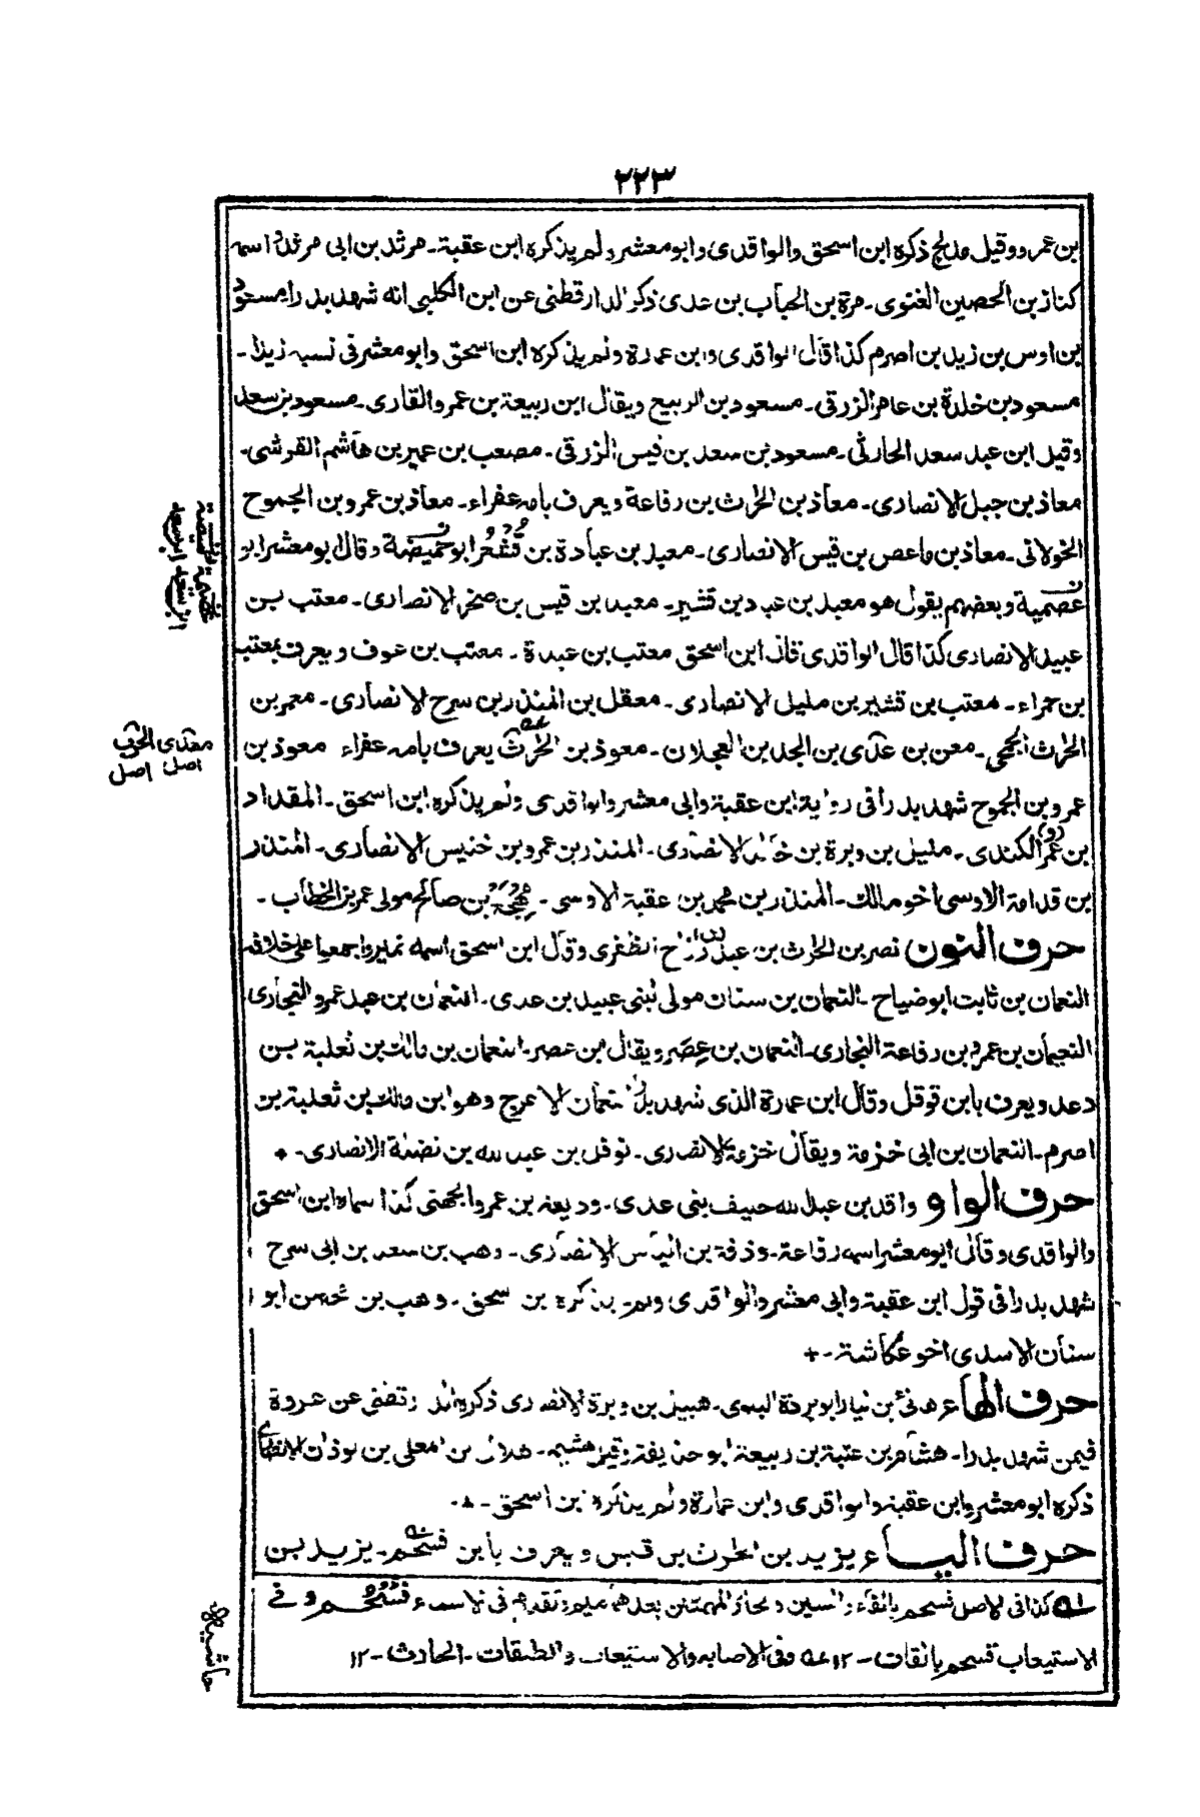 ٢٢٣
بن عمرو وقيل مدلج ذكره ابن اسحق والواقدى وابو معشر ولم يذكره ابن عقبة ـ مرثد بن ابى مرثد واسمه
كناز بن الحصين الغنوى ـ مرة بن الحباب بن عدى ذكر الدارقطنى عن ابن الكلبى انه شهد بدرا مسعود
بن اوس بن زيد بن اصرم كذا قال الواقدى وابن عمارة ولم يذكره ابن اسحق وابو معشر فى نسبه زيدا ـ
مسعود بن خلدة بن عامر الزرقى ـ مسعود بن الربيع ويقال ابن ربيعة بن عمرو القارى ـ مسعود بن سعد
وقيل ابن عبد سعد الحارثى ـ مسعود بن سعد بن قيس الزرقى ـ مصعب بن عمير بن هاشم القرشى ـ
معاذ بن جبل الانصارى ـ معاذ بن الحارث بن رفاعة ويعرف بامه عفراء ـ معاذ بن عمرو بن الجموح
الخولانى ـ معاذ بن ماعص بن قيس الانصارى ـ معبد بن عبادة بن قشعر ابو حميضة وقال ابو معشر ابو
عصمية وبعضهم يقول هو معبد بن عباد بن قشير ـ معبد بن قيس بن صخر الانصارى ـ معتب بن
عبيد الانصارى كذا قال الواقدى قال ابن اسحق معتب بن عبدة ـ معتب بن عوف ويعرف بمعتب
بن حمراء ـ معتب بن قشير بن مليل الانصارى ـ معقل بن المنذر بن سرح الانصارى ـ معمر بن
الحارث الجمحى ـ معن بن عدى بن الجد بن العجلان ـ معوذ بن الحارث يعرف بامه عفراء معوذ بن
عمرو بن الجموح شهد بدرا فى رواية ابن عقبة وابى معشر والواقدى ولم يذكره ابن اسحق ـ المقداد
بن عمرو الكندى ـ مليل بن وبرة بن خالد الانصارى ـ المنذر بن عمرو بن خنيس الانصارى ـ المنذر
بن قدامة الاوسى اخو مالك ـ المنذر بن محمد بن عقبة الاوسى ـ مهجع بن صالح مولى عمر بن الخطاب ـ
حرف النون نصر بن الحارث بن عبد رزاح الظفرى وقال ابن اسحق اسمه نمير واجمعوا على خلافه
النعمان بن ثابت ابو ضياح ـ النعمان بن سنان مولى لبنى عبيد بن عدى ـ النعمان بن عبد عمرو النجارى
النعيمان بن عمرو بن رفاعة النجارى ـ النعمان بن عصر ويقال بن عصر ـ النعمان بن مالك بن ثعلبة بن
دعد ويعرف بابن قوقل وقال ابن عمارة الذى شهد بدرا نعمان الاعرج وهو ابن مالك بن ثعلبة بن
اصرم ـ النعمان بن ابى خزمة ويقال خزمة الانصارى ـ نوفل بن عبد الله بن نضلة الانصارى ـ
حرف الواو واقد بن عبد الله حليف بنى عدى ـ وديعة بن عمرو الجهنى كذا سماه ابن اسحق
والواقدى وقال ابو معشر اسمه رفاعة ـ وذفة بن اياس الانصارى ـ وهب بن سعد بن ابى سرح
شهد بدرا فى قول ابن عقبة وابى معشر والواقدى ولم يذكره بن اسحق ـ وهب بن محصن ابو
سنان الاسدى اخو عكاشة ـ +
حرف الهاء هانئ بن نيار ابو بردة البلوى ـ هبيل بن وبرة الانصارى ذكره الدارقطنى عن عروة
فيمن شهد بدرا ـ هشام بن عتبة بن ربيعة ابو حذيفة وقيل هشيم ـ هلال بن المعلى بن لوذان الانصارى
ذكره ابو معشر وابن عقبة والواقدى وابن عمارة ولم يذكره بن اسحق ـ
حرف الياء يزيد بن الحرث بن قيس ويعرف بابن فسحم ـ يزيد بن
كذا فى الاصل فسحم بالفاء والسين والحاء المهملتين بعدها ميم وتقدم فى الاسماء فسحم وفى
الاستيعاب قسحم بالقاف ـ ١٢ وفى الاصابه والاستيعاب والطبقات ـ الحارث ـ ١٢